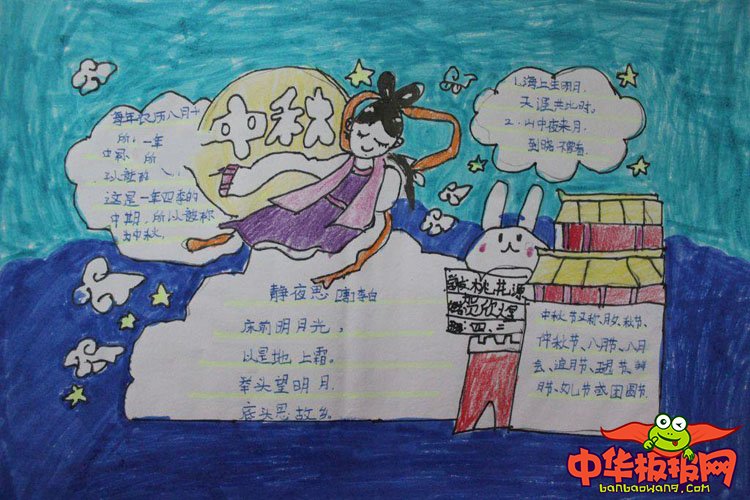 中秋
每年农历八月十
所，一年
以
这是一年四季的
中期，所以被称
为中秋。
1.海上生明月，
天涯共此时。
2.山中夜来月，
到晓不曾看。
静夜思 [唐]李白
床前明月光，
以是地上霜。
举头望明月，
底头思故乡。
桃花源
四、二
中秋节又称、月夕、秋节、
仲秋节、八月节、八月
会、追月节、玩月节、拜
月节、女儿节或团圆节
中华板报网
banbaowang.com